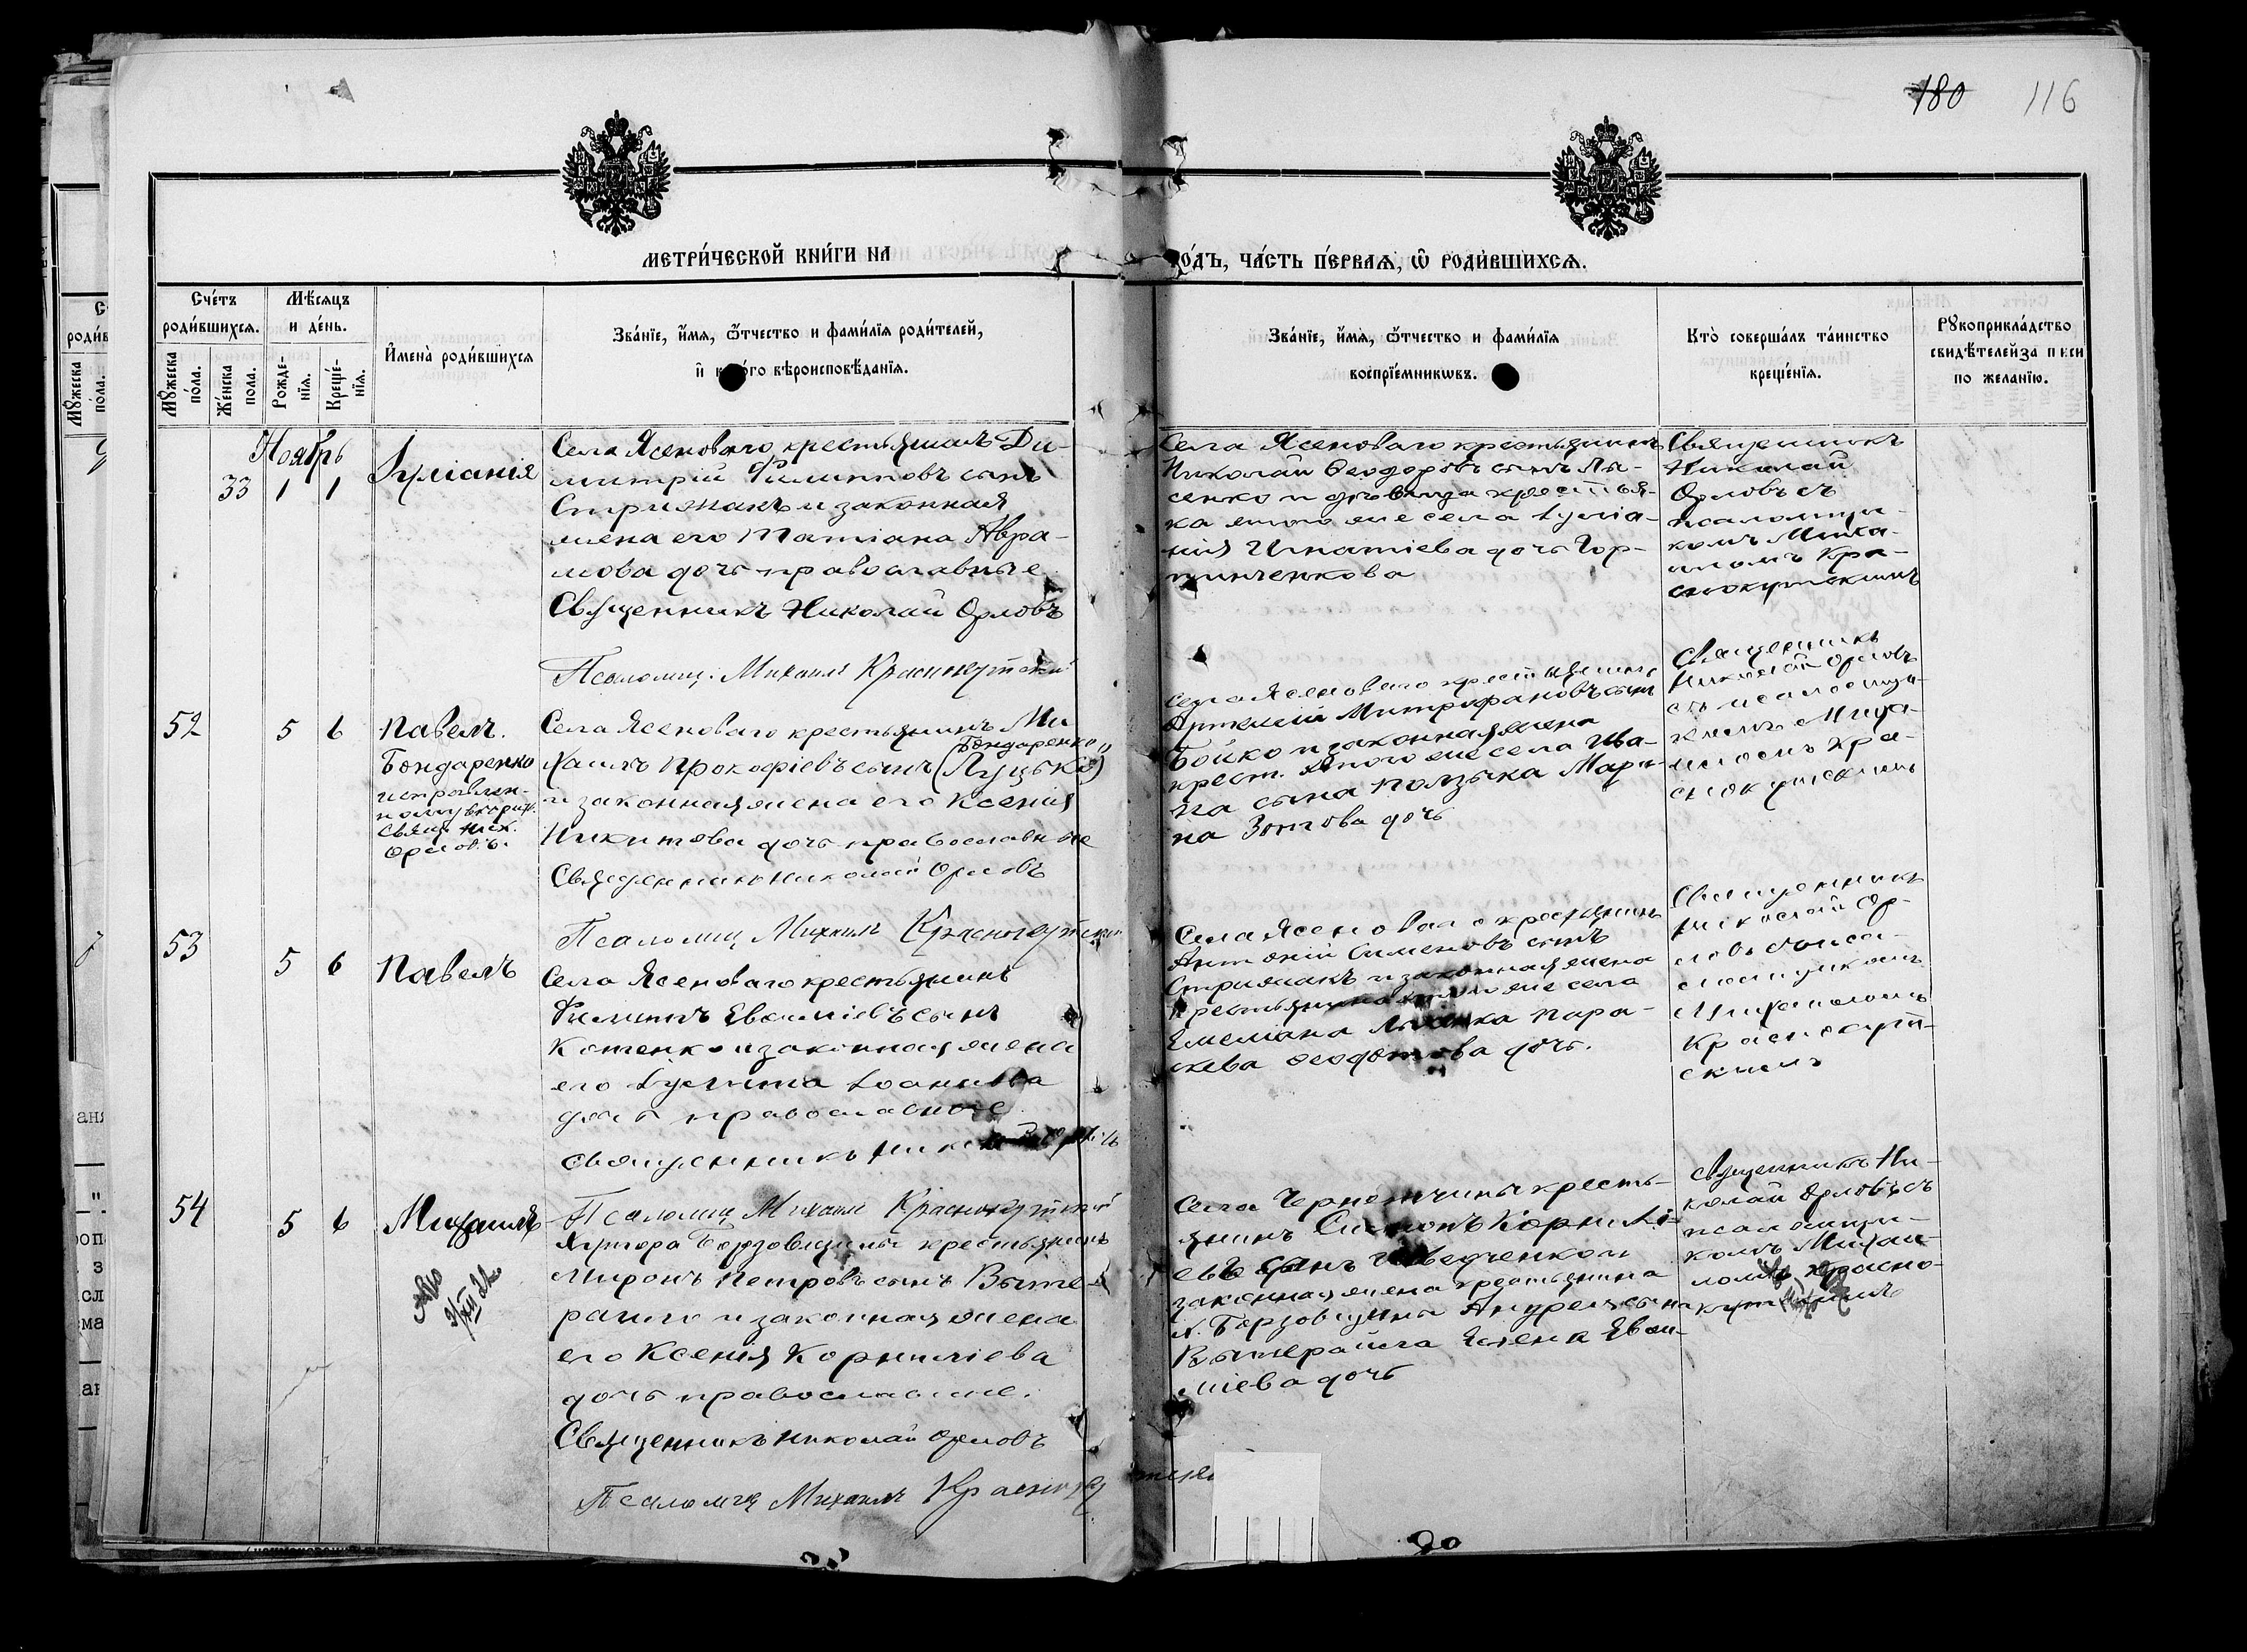 180 116
МЕТРИ́ЧЕСКОЙ КНИ́ГИ НА
ГО́ДЪ, ЧА́СТЬ ПЕ́РВАѦ, Ѽ РОДИ́ВШИХСѦ.
Сче́тъ роди́вшихсѧ.
Мꙋ́жеска по́ла.
Же́нска по́ла.
Мѣ́сѧцъ и де́нь.
Рожде́-нїѧ.
Креще́-нїѧ.
И҆мена̀ роди́вшихсѧ
Зва́нїе, и҆́мѧ, ѻ҆́тчество и фами́лїѧ роди́телей,
и҆ како́го вѣроисповѣ́данїѧ.
Зва́нїе, и҆́мѧ, ѻ҆́тчество и фами́лїѧ
воспрїе́мникѡвъ.
Кто̀ соверша́лъ та́инство
креще́нїѧ.
Рꙋкоприкла́дство
свидѣ́телей
по жела́нїю.
Ноябрь
33 1 1
Іуліанія
Села Ясеноваго крестьянинъ Ди-
митрій Филипповъ сынъ
Стрижакъ и законная
жена его Татіана Авра-
мова дочь православные
Священникъ Николай Орловъ
Псаломщ. Михаилъ Краснокутскій
Села Ясеноваго крестьянинъ
Николай Ѳеодоровъ сынъ Лы-
сенко и дѣвица крестья-
ка того же села Іуліа-
нія Игнатіева дочь Гор-
Священникъ
Николай
Орловъ съ
псаломщи-
комъ Миха-
иломъ Кра-
снокутскимъ
52 5 6
Павелъ.
Бондаренко
исправлен-
Свящ. Ник.
Орловъ.
Села Ясеноваго крестьянинъ Ми
Бондаренко
хаилъ Прокофіевъ сынъ (Луцько)
и законная жена его Ксенія
Никитова дочь православные
Священникъ Николай Орловъ
Псаломщ Михаилъ Краснокутскій
Села Ясеноваго крестьянинъ
Митрофановъ сынъ
Бойко и законная жена
крест. того же села Ива-
на сына Ползыка Мари-
на Зотова дочь
Священникъ
Николай Орловъ
съ псаломщи-
комъ Миха-
иломъ Кра-
снокутскимъ
53 5 6
Павелъ
Села Ясеноваго крестьянинъ
Филиппъ Евѳиміевъ сынъ
Котенко и законная жена
его Іулита Іоаннова
дочь православные
Священникъ Николай Орловъ
Псаломщ Михаилъ Краснокутскій
Села Ясеноваго крестьянинъ
Антоній Симеоновъ сынъ
Стрижакъ и законная жена
крестьянина того же села
Емеліана Лысенка Пара-
скева Ѳеодотова дочь.
Священникъ
Николай Ор-
ловъ съ пса-
ломщикомъ
Михаиломъ
Краснокут-
скимъ
54 5 6
Михаилъ
Хутора Борзовщины крестьянинъ
Миронъ Петровъ сынъ Выте-
и законная жена
его Ксенія Корниліева
дочь православные.
Священникъ Николай Орловъ
Псаломщ Михаилъ Краснокутскій
Села Чернетчины кресть-
янинъ Симонъ Корнилі-
евъ сынъ
законная жена крестьянина
х. Борзовщины Андрея сына
Елена Евѳи-
міева дочь
Священникъ Ни-
колай Орловъ съ
псаломщи-
комъ Михаи-
ломъ Красно-
кутскимъ